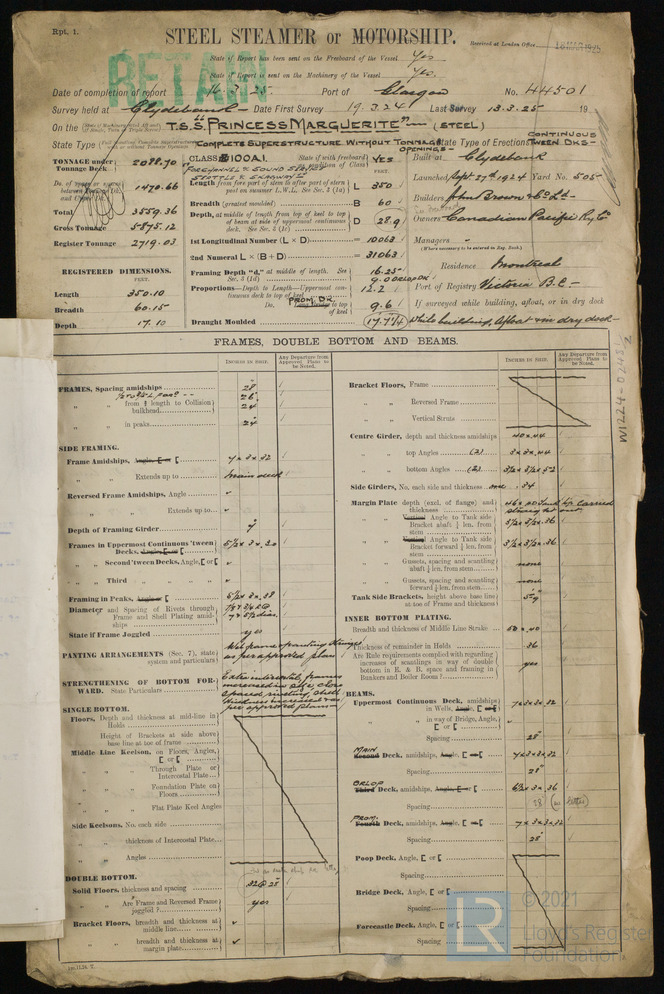 Rpt. 1.
STEEL STEAMER or MOTORSHIP.
Received at London Office
RETAIN
State of Report has been sent on the Freeboard of the Vessel Yes
State of Report is sent on the Machinery of the Vessel Yes.
Date of completion of report 16.3.25. Port of Glasgow No. 44501
Survey held at Clydebank Date First Survey 19.3.24 Last Survey 13.3.25 19
On the T.S.S. "PRINCESS MARGUERITE" (STEEL)
State Type COMPLETE SUPERSTRUCTURE WITHOUT TONNAGE OPENINGS State Type of Erections CONTINUOUS TWEEN DKS
TONNAGE under Tonnage Deck 2088.70
Do. of space or spaces between Tonnage Dk and Upper Dk 1470.66
Total 3559.36
Gross Tonnage 5875.12
Register Tonnage 2719.03
REGISTERED DIMENSIONS.
FEET.
Length 350.10
Breadth 60.15
Depth 17.10
CLASS 100A.1. State if with freeboard as condition of Class YES
FEET.
Length from fore part of stem to after part of stern post on summer L.W.L. See Sec. 3 (1a) L 350
Breadth (greatest moulded) B 60
Depth, at middle of length from top of keel to top of beam at side of uppermost continuous deck. See Sec. 3 (1c) D 28.9
1st Longitudinal Number (L × D) = 10063
2nd Numeral L × (B + D) = 31063
Framing Depth "d," at middle of length. See Sec. 3 (1d) 16.25
Proportions—Depth to Length—Uppermost continuous deck to top of keel 12.2
Do. PROM. DK. to top of keel 9.6
Draught Moulded 17.7 1/4
Built at Clydebank
Launched Sept. 27th 1924 Yard No. 505
Builders John Brown & Co Ld
Owners Canadian Pacific Ry Co
Managers
(Where necessary to be entered in Reg. Book.)
Residence Montreal
Port of Registry Victoria B.C.
If surveyed while building, afloat, or in dry dock
While building, Afloat & in dry dock
W1224-0243 1/2
FRAMES, DOUBLE BOTTOM AND BEAMS.
INCHES IN SHIP.
Any Departure from Approved Plans to be Noted.
INCHES IN SHIP.
Any Departure from Approved Plans to be Noted.
FRAMES, Spacing amidships 28"
26"
" " from 1/5 length to Collision bulkhead 24"
" " in peaks 24"
SIDE FRAMING.
Frame Amidships, Angle, E or [ 7 x 3 x 32
" " Extends up to main deck
Reversed Frame Amidships, Angle
" " Extends up to
Depth of Framing Girder 7"
Frames in Uppermost Continuous 'tween Decks, Angle, E or [ 5 1/2 x 3 x .30
" " Second 'tween Decks, Angle, E or [
" " Third " "
Framing in Peaks, Angle or [ 5 1/2 x 3 x 38
Diameter and Spacing of Rivets through Frame and Shell Plating amidships
State if Frame Joggled yes
PANTING ARRANGEMENTS (Sec. 7), state system and particulars Web frames & panting stringers as per approved plan
STRENGTHENING OF BOTTOM FORWARD. State Particulars
as per approved plans
SINGLE BOTTOM.
Floors, Depth and thickness at mid-line in Holds
Height of Brackets at side above base line at toe of frame
Middle Line Keelson, on Floors, Angles, E or [
" " Through Plate or Intercostal Plate
" " Foundation Plate on Floors
" " Flat Plate Keel Angles
Side Keelsons, No. each side
" " thickness of Intercostal Plate
" " Angles
DOUBLE BOTTOM.
Solid Floors, thickness and spacing .32 @ 28"
" " Are Frame and Reversed Frame joggled? yes
Bracket Floors, breadth and thickness at middle line
" " breadth and thickness at margin plate
Bracket Floors, Frame
" " Reversed Frame
" " Vertical Struts
Centre Girder, depth and thickness amidships 40 x .44
" " top Angles (2) 3 x 3 x .44
" " bottom Angles (2) 3 1/2 x 3 1/2 x .52
Side Girders, No. each side and thickness one .34
Margin Plate depth (excl. of flange) and thickness 46 x .40 Tank top carried straight out
" " Vertical Angle to Tank side Bracket abaft 1/4 len. from stem 3 1/2 x 3 1/2 x .36
" " Vertical Angle to Tank side Bracket forward 1/4 len. from stem 3 1/2 x 3 1/2 x .36
" " Gussets, spacing and scantling abaft 1/4 len. from stem none
" " Gussets, spacing and scantling forward 1/4 len. from stem none
Tank Side Brackets, height above base line at toe of Frame and thickness
INNER BOTTOM PLATING.
Breadth and thickness of Middle Line Strake 50 x .40
Thickness of remainder in Holds .36
Are Rule requirements complied with regarding increases of scantlings in way of double bottom in E. & B. space and framing in Bunkers and Boiler Room? yes
BEAMS.
Uppermost Continuous Deck, amidships in Wells, Angle, E or [ 7 x 3 x 3 x 32
" " in way of Bridge, Angle, E or [
Spacing 28"
MAIN Second Deck, amidships, Angle, E or [ 7 x 3 x 3 x 32
Spacing 28"
ORLOP Third Deck, amidships, Angle, E or [ 6 1/2 x 3 x .36
Spacing 28
PROM. Fourth Deck, amidships, Angle, E or [ 7 x 3 x 3 x 32
Spacing 28"
Poop Deck, Angle, E or [
Spacing
Bridge Deck, Angle, E or [
Spacing
Forecastle Deck, Angle, E or [
Spacing
LR
© 2021
Lloyd's Register
Foundation